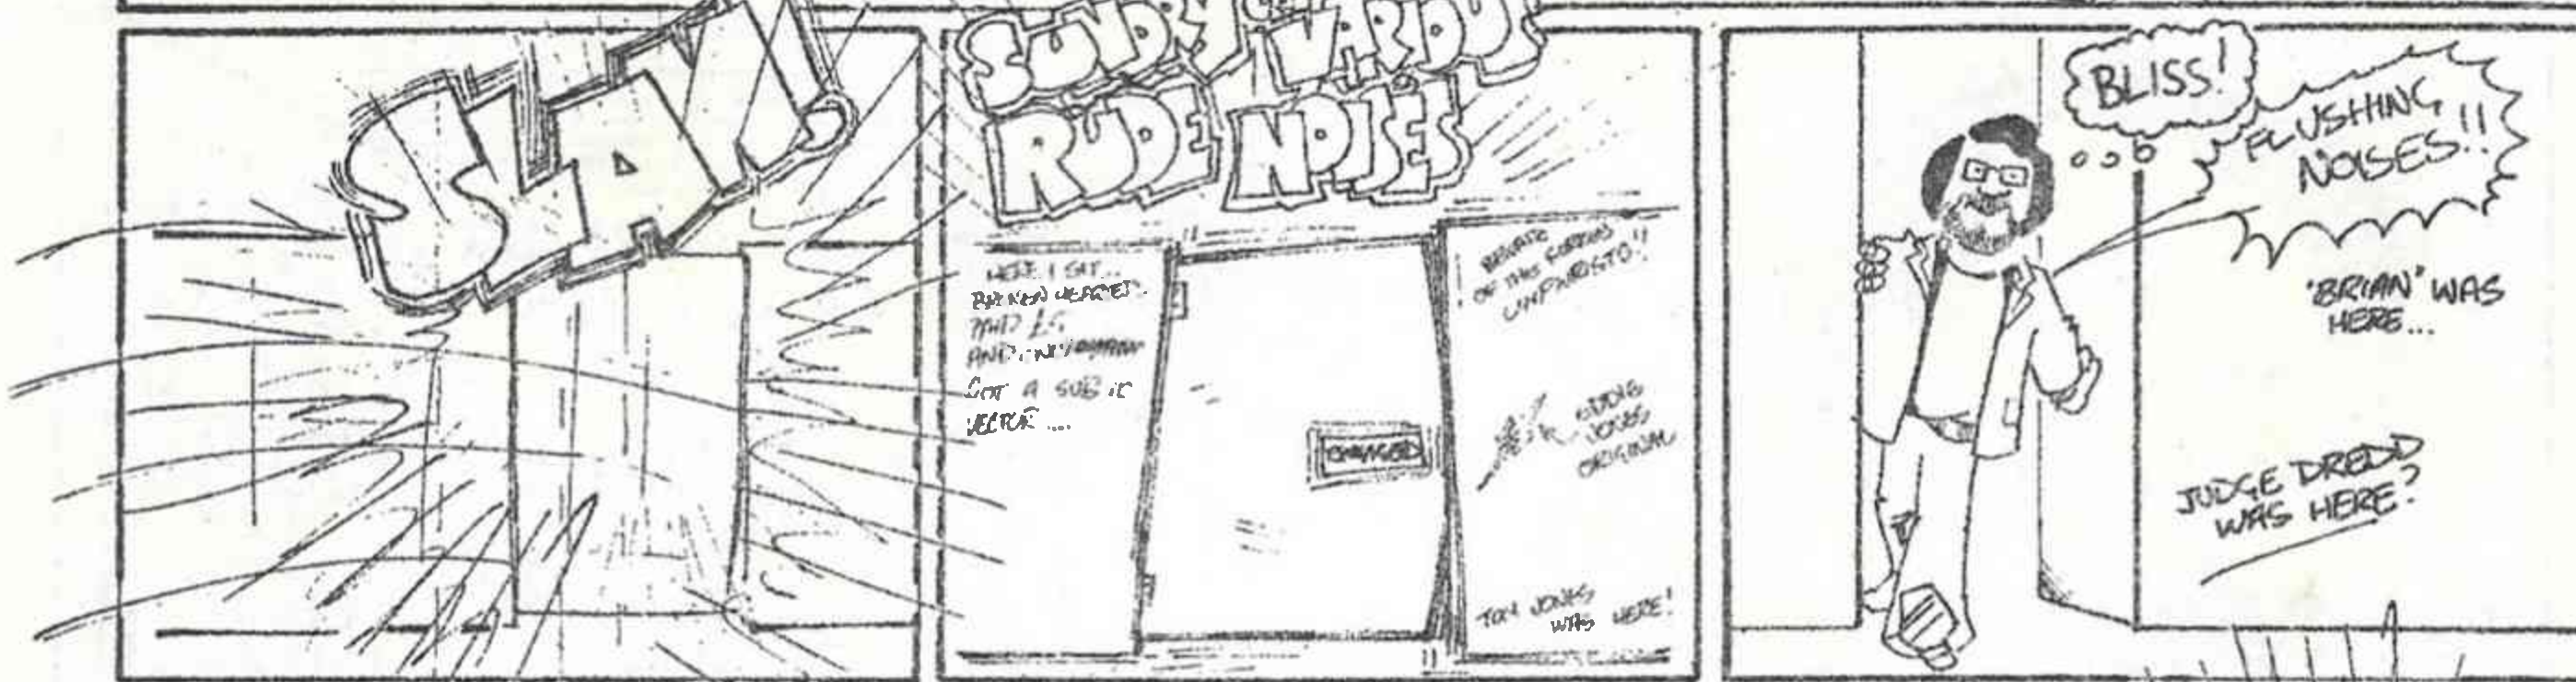 SLAM!
SUNDRY
VARIOUS
RUDE NOISES
HERE I SIT...
BROKEN HEARTED.
PAID £5
AND ONLY
GOT A SUB IC
VECTOR ....
BEWARE
OF THIS
ENGAGED
EDDIE
JONES
ORIGINAL
TOM JONES
WAS HERE!
BLISS!
FLUSHING
NOISES!!
'BRIAN' WAS
HERE...
JUDGE DREDD
WAS HERE?